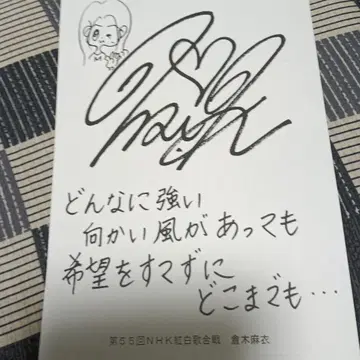 どんなに強い
向かい風があっても
希望をすてずに
どこまでも・・・
第55回NHK紅白歌合戦 倉木麻衣